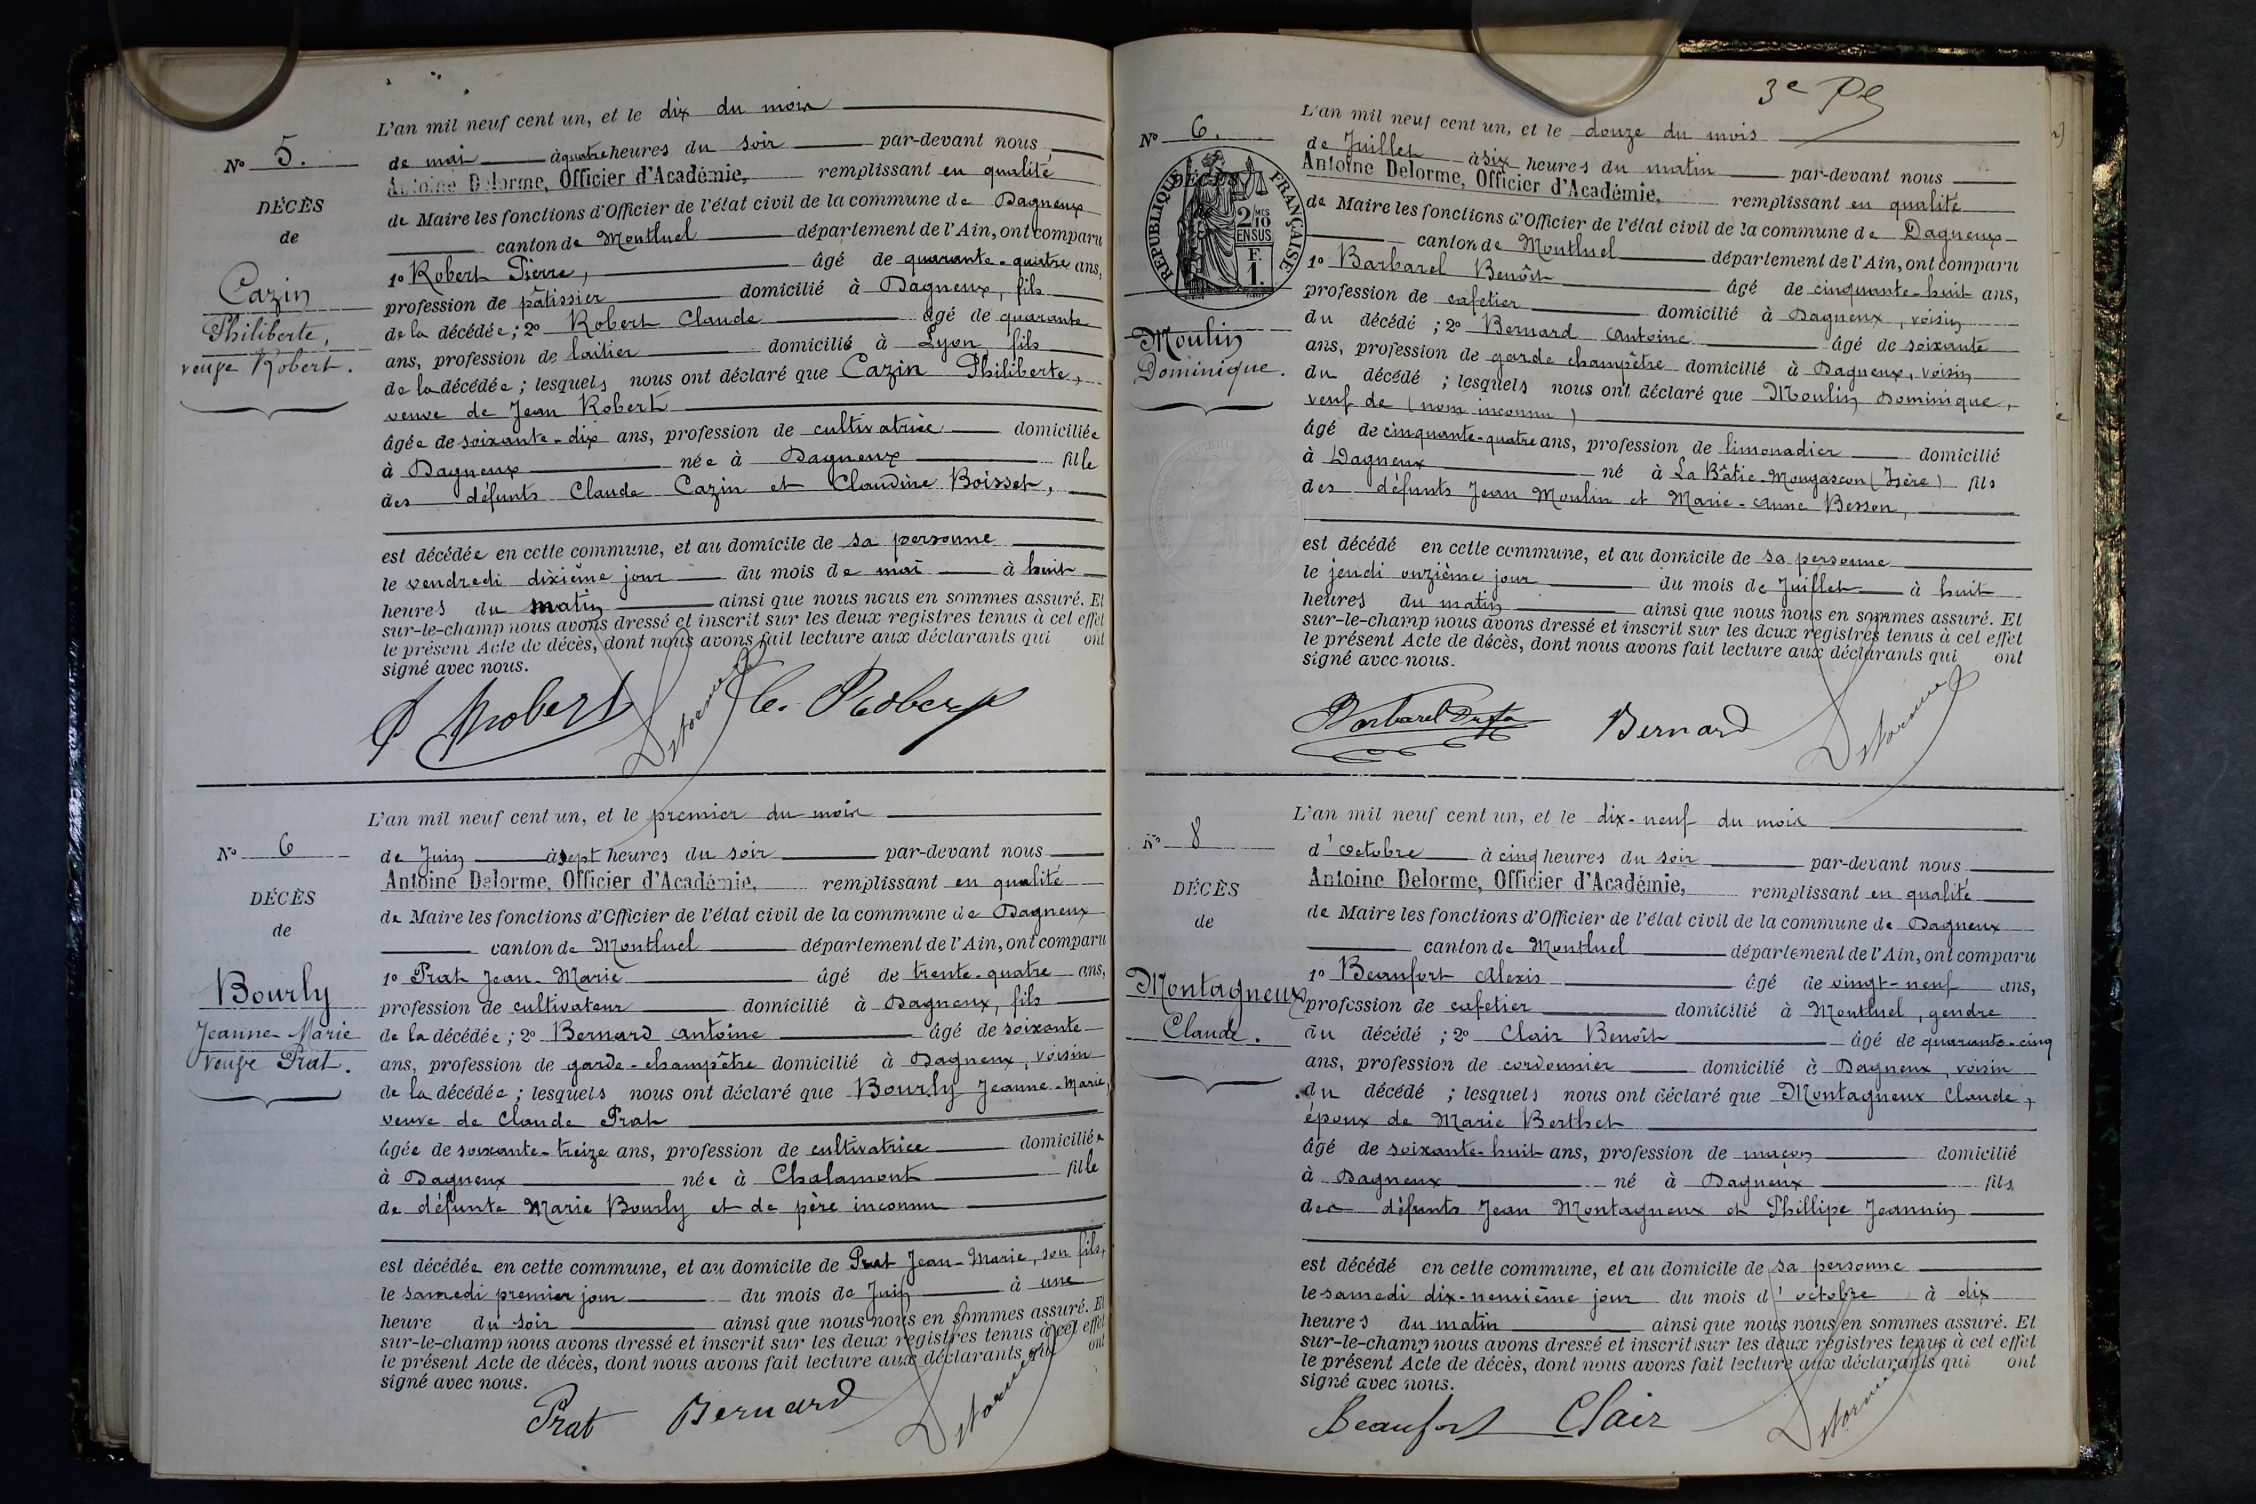 L'an mil neuf cent un, et le dix du mois
N° 5.
de mai à quatre heures du soir par-devant nous
Antoine Delorme, Officier d'Académie, remplissant en qualité
DÉCÈS
de Maire les fonctions d'Officier de l'état civil de la commune de Dagneux
de
canton de Montluel département de l'Ain, ont comparu
1° Robert Pierre, âgé de quarante-quatre ans,
Cazin
profession de pâtissier domicilié à Dagneux, fils
Philiberte,
de la décédée ; 2° Robert Claude âgé de quarante
veuve Robert.
ans, profession de laitier domicilié à Lyon, fils
de la décédée ; lesquels nous ont déclaré que Cazin Philiberte,
veuve de Jean Robert
âgée de soixante-dix ans, profession de cultivatrice domiciliée
à Dagneux née à Dagneux fille
des défunts Claude Cazin et Claudine Boisset,
est décédée en cette commune, et au domicile de sa personne
le vendredi dixième jour du mois de mai à huit
heures du matin ainsi que nous nous en sommes assuré. Et
sur-le-champ nous avons dressé et inscrit sur les deux registres tenus à cet effet
le présent Acte de décès, dont nous avons fait lecture aux déclarants qui ont
signé avec nous.
P Robert Delorme C. Robert
L'an mil neuf cent un, et le premier du mois
N° 6
de Juin à sept heures du soir par-devant nous
Antoine Delorme, Officier d'Académie, remplissant en qualité
DÉCÈS
de Maire les fonctions d'Officier de l'état civil de la commune de Dagneux
de
canton de Montluel département de l'Ain, ont comparu
1° Prat Jean-Marie âgé de trente-quatre ans,
Bourly
profession de cultivateur domicilié à Dagneux, fils
Jeanne-Marie
de la décédée ; 2° Bernard Antoine âgé de soixante
veuve Prat.
ans, profession de garde-champêtre domicilié à Dagneux, voisin
de la décédée ; lesquels nous ont déclaré que Bourly Jeanne-Marie,
veuve de Claude Prat
âgée de soixante-treize ans, profession de cultivatrice domiciliée
à Dagneux née à Chalamont fille
de défunte Marie Bourly et de père inconnu
est décédée en cette commune, et au domicile de Prat Jean-Marie, son fils,
le samedi premier jour du mois de Juin à une
heure du soir ainsi que nous nous en sommes assuré. Et
sur-le-champ nous avons dressé et inscrit sur les deux registres tenus à cet effet
le présent Acte de décès, dont nous avons fait lecture aux déclarants qui ont
signé avec nous.
Prat Bernard Delorme
3e
L'an mil neuf cent un, et le douze du mois
N° 6.
de Juillet à six heures du matin par-devant nous
Antoine Delorme, Officier d'Académie, remplissant en qualité
DÉCÈS
RÉPUBLIQUE FRANÇAISE
2/10 MES
EN SUS
F.
1.
de Maire les fonctions d'Officier de l'état civil de la commune de Dagneux
canton de Montluel département de l'Ain, ont comparu
1° Barbarel Benoît âgé de cinquante-huit ans,
profession de cafetier domicilié à Dagneux, voisin
Moulin
du décédé ; 2° Bernard Antoine âgé de soixante
Dominique.
ans, profession de garde champêtre domicilié à Dagneux, voisin
du décédé ; lesquels nous ont déclaré que Moulin Dominique,
veuf de (nom inconnu)
âgé de cinquante-quatre ans, profession de limonadier domicilié
à Dagneux né à La Bâtie-Mongascon (Isère) fils
des défunts Jean Moulin et Marie-Anne Besson,
est décédé en cette commune, et au domicile de sa personne
le jeudi onzième jour du mois de Juillet à huit
heures du matin ainsi que nous nous en sommes assuré. Et
sur-le-champ nous avons dressé et inscrit sur les deux registres tenus à cet effet
le présent Acte de décès, dont nous avons fait lecture aux déclarants qui ont
signé avec nous.
Barbarel Bernard Delorme
L'an mil neuf cent un, et le dix-neuf du mois
N° 8
d'octobre à cinq heures du soir par-devant nous
DÉCÈS
Antoine Delorme, Officier d'Académie, remplissant en qualité
de
de Maire les fonctions d'Officier de l'état civil de la commune de Dagneux
canton de Montluel département de l'Ain, ont comparu
1° Beaufort Alexis âgé de vingt-neuf ans,
Montagneux
profession de cafetier domicilié à Montluel, gendre
Claude.
du décédé ; 2° Clair Benoît âgé de quarante-cinq
ans, profession de cordonnier domicilié à Dagneux, voisin
du décédé ; lesquels nous ont déclaré que Montagneux Claude,
époux de Marie Berthet
âgé de soixante-huit ans, profession de maçon domicilié
à Dagneux né à Dagneux fils
des défunts Jean Montagneux et Phillipe Jeannin
est décédé en cette commune, et au domicile de sa personne
le samedi dix-neuvième jour du mois d'octobre à dix
heures du matin ainsi que nous nous en sommes assuré. Et
sur-le-champ nous avons dressé et inscrit sur les deux registres tenus à cet effet
le présent Acte de décès, dont nous avons fait lecture aux déclarants qui ont
signé avec nous.
Beaufort Clair Delorme